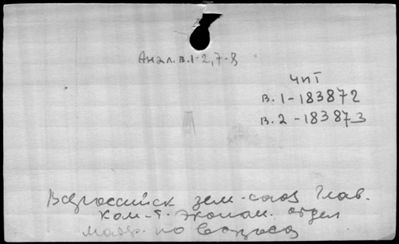 Анал.в.1-2,7-8
чит
в.1-183872
в.2-183873
Всероссийск зем.-союз Глав.
ком-т. Эконом. отдел
по